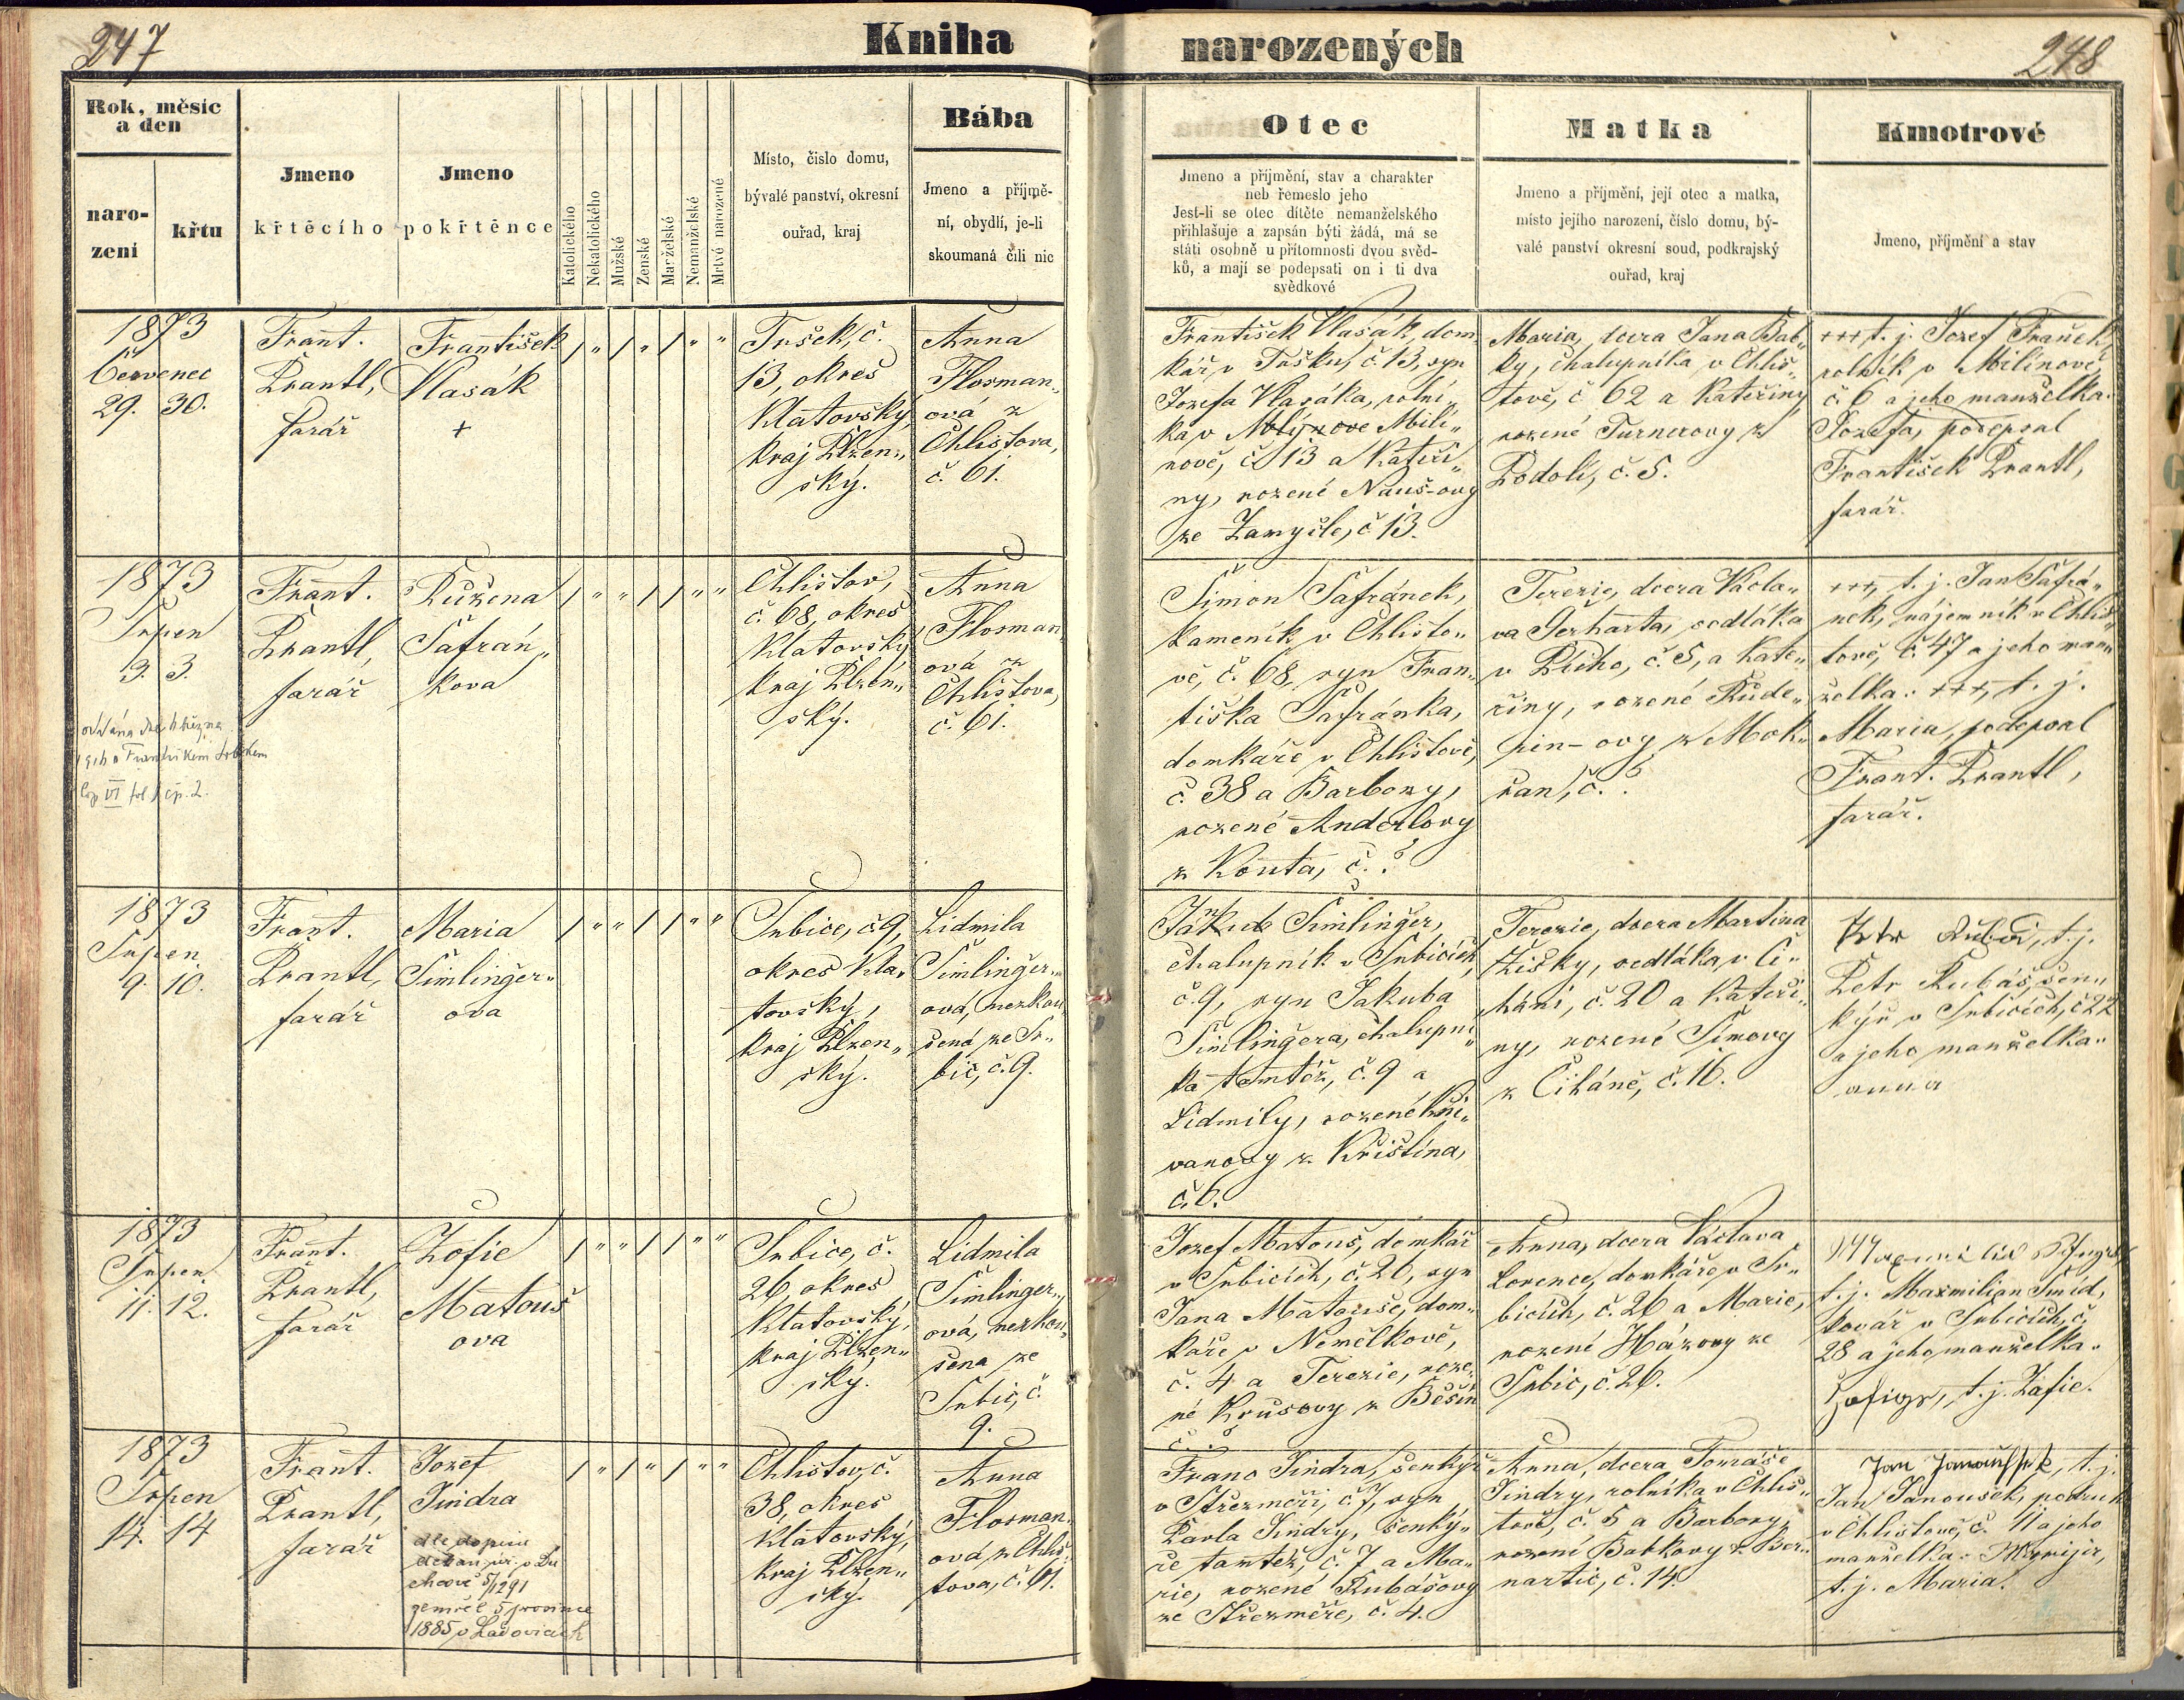 247
Kniha
narozených
248
Rok, měsíc
a den
naro-
zení
křtu
Jmeno
křtěcího
Jmeno
pokřtěnce
Katolického
Nekatolického
Mužské
Ženské
Manželské
Nemanželské
Mrtvě narozené
Místo, čislo domu,
bývalé panství, okresní
ouřad, kraj
Bába
Jmeno a příjmě-
ní, obydlí, je-li
skoumaná čili nic
Otec
Jmeno a přijmění, stav a charakter
neb řemeslo jeho
Jest-li se otec dítěte nemanželského
přihlašuje a zapsán býti žádá, má se
státi osobně u přítomnosti dvou svěd-
ků, a mají se podepsati on i ti dva
svědkové
Matka
Jmeno a příjmění, její otec a matka,
místo jejího narození, číslo domu, bý-
valé panství okresní soud, podkrajský
ouřad, kraj
Kmotrové
Jmeno, příjmění a stav
1873
Červenec
29. 30.
Frant.
Prantl,
farář
František
Vlasák
+
Tušek, č.
13, okres
Klatovský,
kraj Plzen„
ský.
Anna
Flosman„
ová z
Chlistova,
č. 61.
František Vlasák, dom„
kář v Tušku, č. 13, syn
Josefa Vlasáka, rolní„
ka v Mlýnove Milí„
nově, č. 13 a Kateři„
ny, rozené Nauš-ovy
ze Zamyšle, č 13.
Maria, dcera Jana Bab„
ky, chalupníka v Chlis„
tově, č 62 a Kateřiny
rozené Turnerovy z
Podolí, č. 5.
+++, t. j. Josef Franěk,
rolník v Milínově,
č. 6 a jeho manželka:
Josefa, podepsal
František Prantl,
farář.
1873
Srpen
3. 3.
Frant.
Prantl,
farář
Růžena
Šafrán„
kova
Chlistov,
č. 68, okres
Klatovský
kraj Plzen„
ský.
Anna
Flosman„
ová z
Chlistova,
č. 61.
Šimon Šafránek,
kameník v Chlisto„
vě, č. 68, syn Fran„
tiška Šafránka,
domkáře v Chlistově,
č. 38 a Barbory,
rozené Anderlovy
z Kouta, č. ?
Terezie, dcera Václa„
va Gerharta, sedláka
v Plího, č. 5, a Kate„
řiny, rozené Rude„
rin-ovy z Mok„
řan, č. ?
+++, t. j. Jan Šafrá„
nek, nájemník v Chlis„
tově, č. 47 a jeho man„
želka: +++, t. j.
Maria, podepsal
Frant. Prantl,
farář.
1873
Srpen
9. 10.
Frant.
Prantl,
farář
Maria
Šimlinger„
ova
Srbice, č 9,
okres Kla„
tovský,
kraj Plzen„
ský.
Lidmila
Šimlinger„
ová, nezkou„
šená ze Sr„
bic, č. 9.
Jakub Šimlinger,
chalupník v Srbicích,
č. 9, syn Jakuba
Šimlingera, chalupní„
ka tamtéž, č. 9 a
Lidmily, rozené Kři„
vanovy z Křištína,
č. 6.
Terezie, dcera Martina
Žižky, sedláka v Či„
háni, č. 20 a Kateři„
ny, rozené Šimovy
z Čiháně, č. 16.
Petr Rubáš, t. j.
Petr Rubáš, šen„
kýř v Srbicích, č 22
a jeho manželka:
anna
1873
Srpen
11. 12.
Frant.
Prantl,
farář
Žofie
Matouš
ova
Srbice, č.
26, okres
Klatovský,
kraj Plzen„
ský.
Lidmila
Šimlinger„
ová, nezkou„
šena ze
Srbic, č.
9.
Josef Matouš, domkář
v Srbicích, č. 26, syn
Jana Matouše, dom„
káře v Nemělkově,
č. 4 a Terezie, roze„
né Krůsovy z Běšin
č. ?
Anna, dcera Václava
Lorence, domkáře v Sr„
bicích, č. 26 a Marie,
rozené Házovy ze
Srbic, č. 26.
t. j. Maxmilian Šmíd,
kovář v Srbicích, č.
28 a jeho manželka:
t. j. Žofie.
1873
Srpen
14. 14
Frant.
Prantl,
farář
Josef
Jindra
dle dopisu
zemřel 5 prosince
1885 v Ladovicích
Chlistov, č.
38, okres
Klatovský,
kraj Plzen„
ský.
Anna
Flosman„
ová z Chlis„
tova, č. 61.
Franc Jindra, šenkýř
v Střezměři, č. 7, syn
Pavla Jindry, šenký„
ře tamtéž, č. 7 a Ma„
rie, rozené Rubášovy
ze Střezměře, č. 4.
Anna, dcera Tomáše
Jindry, rolníka v Chlis„
tově, č. 5 a Barbory,
rozené Babkovy z Ber„
nartic, č. 14.
t. j.
Jan Janoušek, podruh
v Chlistově, č. 11 a jeho
manželka:
t. j. Maria.